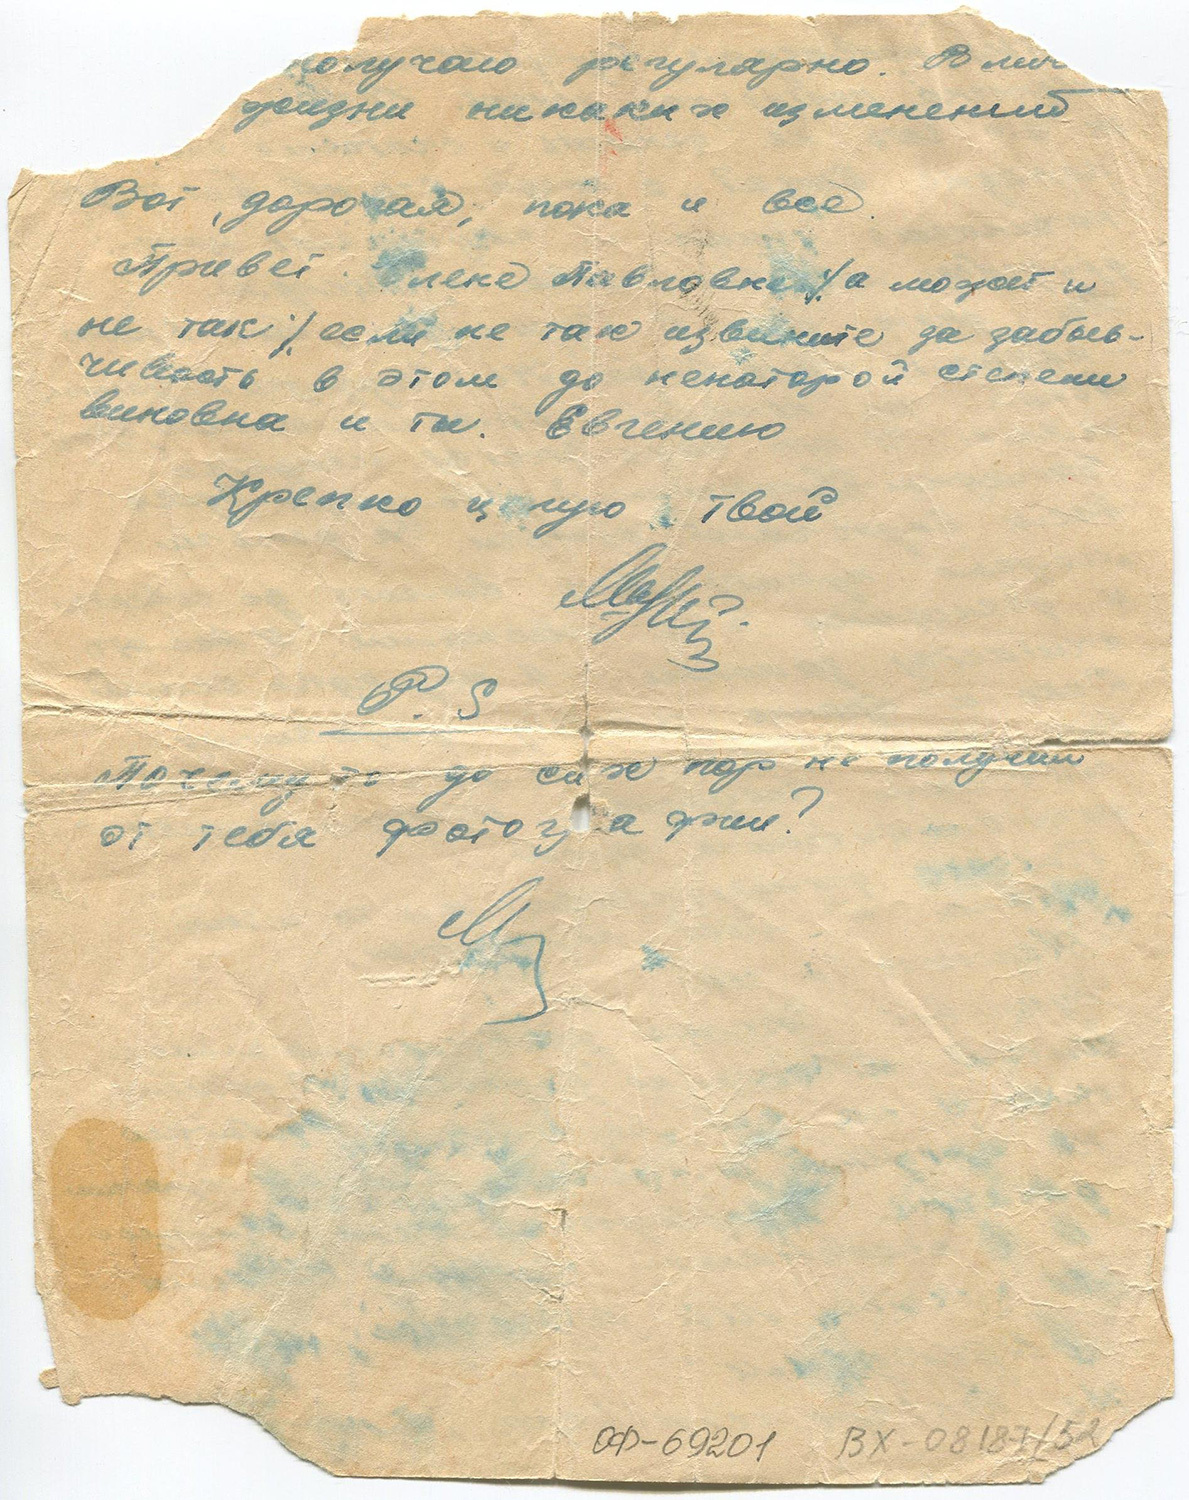 получаю регулярно. В лич
жизни никаких изменений
Вот, дорогая, пока и всё
Привет Елене Павловне /а может и
не так / если не так извините за забыв-
чивость в этом до некоторой степени
виновна и ты. Евгению
Крепко целую твой
P. S
Почему то до сих пор не получил
от тебя фотографии?
М
ОФ-69201 ВХ-08187/52